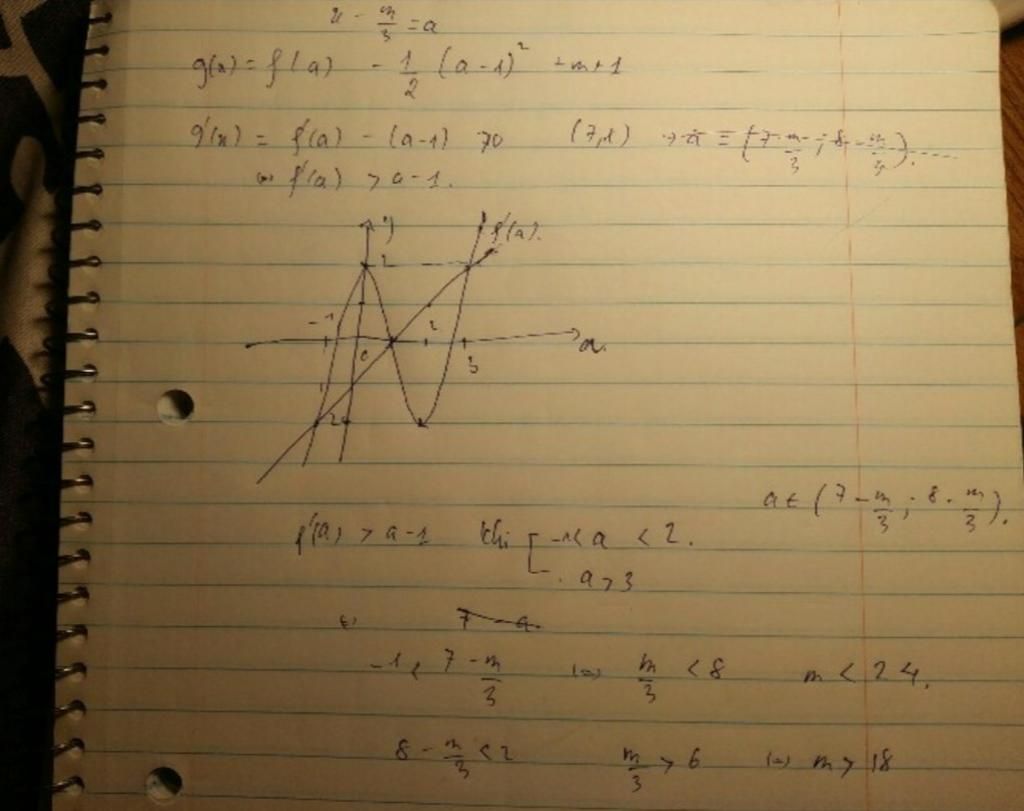 x - m/3 = a
g(x) = f(a) - 1/2 (a-1)² + m+1
g'(x) = f'(a) - (a-1) >0 (7,8) → a = (7 - m/3 ; 8 - m/3).
⇔ f'(a) > a-1.
y
2 f'(a).
-1 0 2 a
3
-2
a ∈ (7 - m/3 ; 8 - m/3).
f'(a) > a-1 khi [ -1< a < 2.
a > 3
7 - a
-1 < 7 - m/3 ⇔ m/3 < 8 m < 24.
8 - m/3 < 2 m/3 > 6 ⇔ m > 18